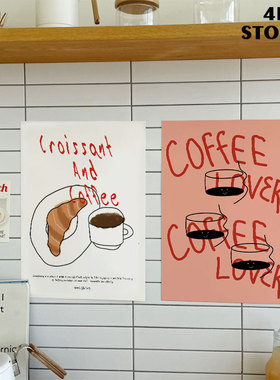 4l
STO
Croissant
And
Coffee
COFFEE
LOVER
COFFEE
LOVER
ch
l
rnic